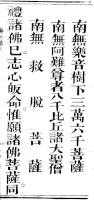 南無樂音樹下三萬六千菩薩
南無阿難尊者八千比丘諸大聖僧
南無救脫菩薩
禮諸佛已志心皈命惟願諸佛菩薩同